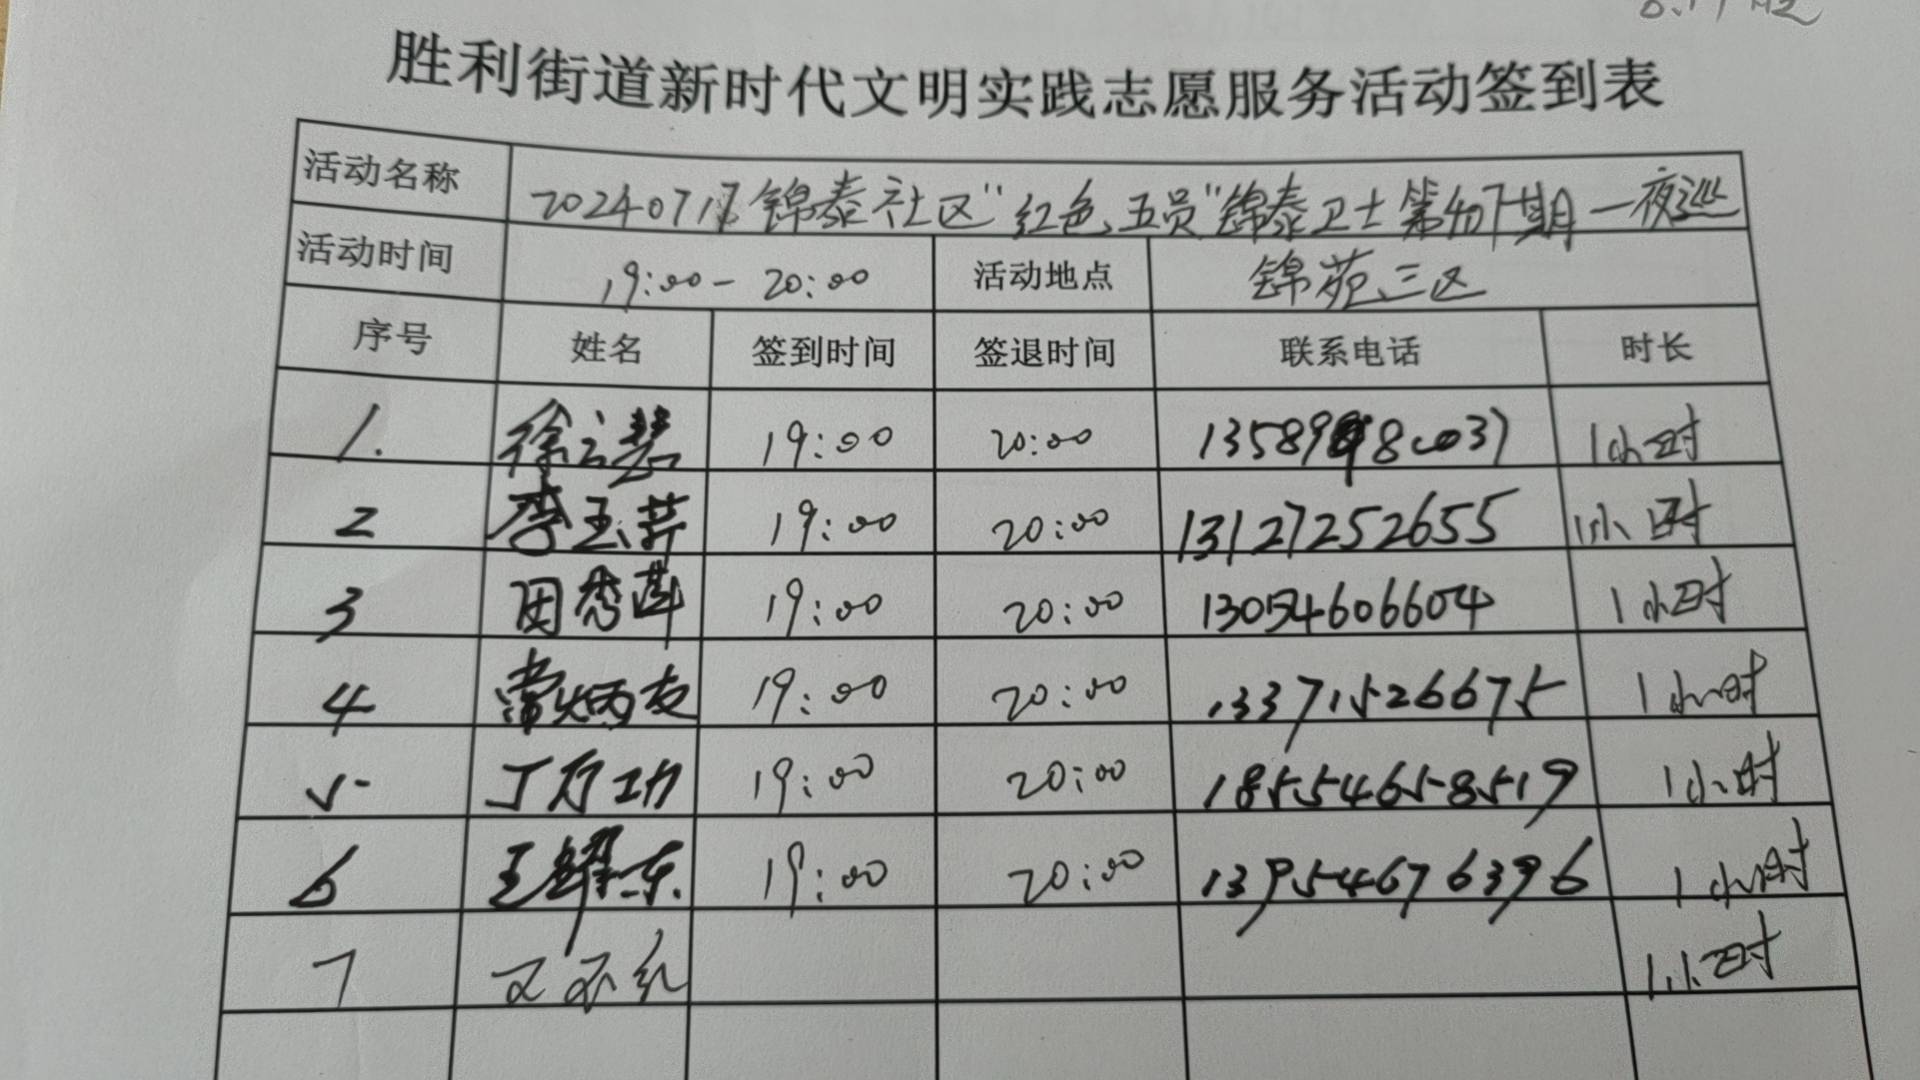 胜利街道新时代文明实践志愿服务活动签到表
活动名称 20240717锦泰社区"红色五员"锦泰卫士第407期—夜巡
活动时间 19:00-20:00 活动地点 锦苑三区
序号 姓名 签到时间 签退时间 联系电话 时长
1. 徐云慧 19:00 20:00 1小时
2 李玉芹 19:00 20:00 13127252655 1小时
3 田秀莲 19:00 20:00 13054606604 1小时
4 常炳友 19:00 20:00 13371526675 1小时
5 丁万功 19:00 20:00 18554658519 1小时
6 王耀东 19:00 20:00 13954676396 1小时
7 1小时